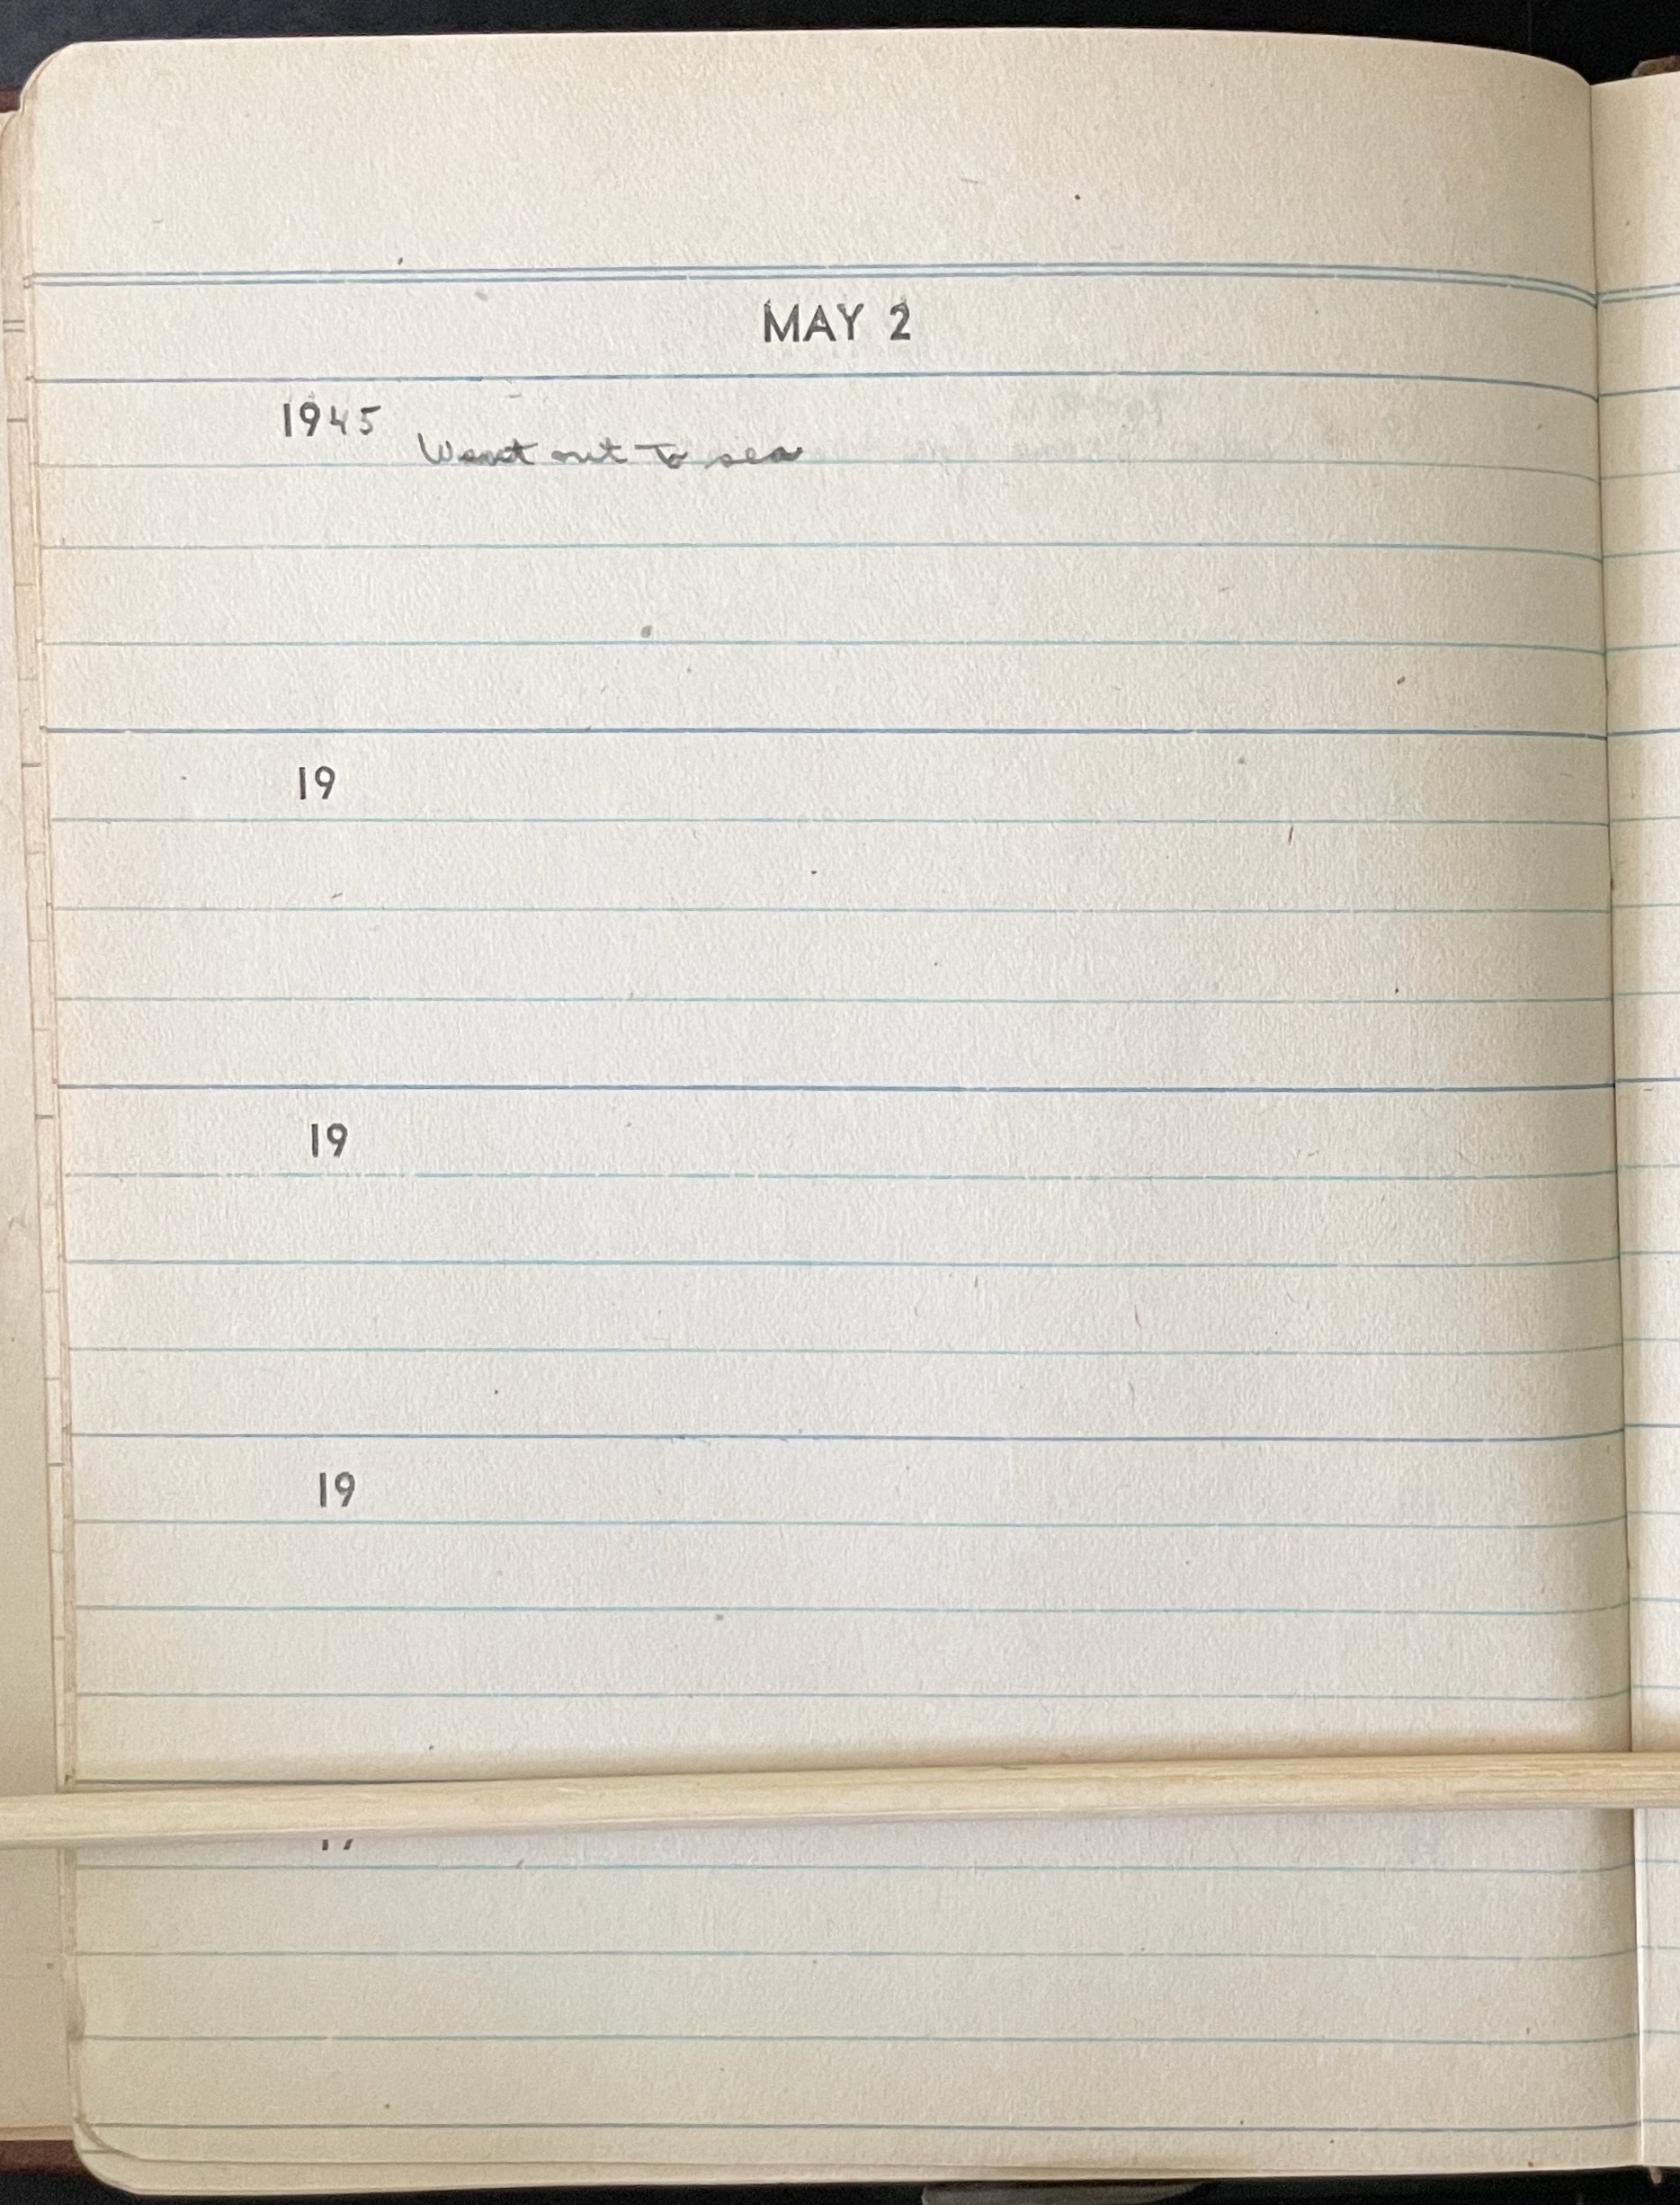 MAY 2
1945
Went out to sea
19
19
19